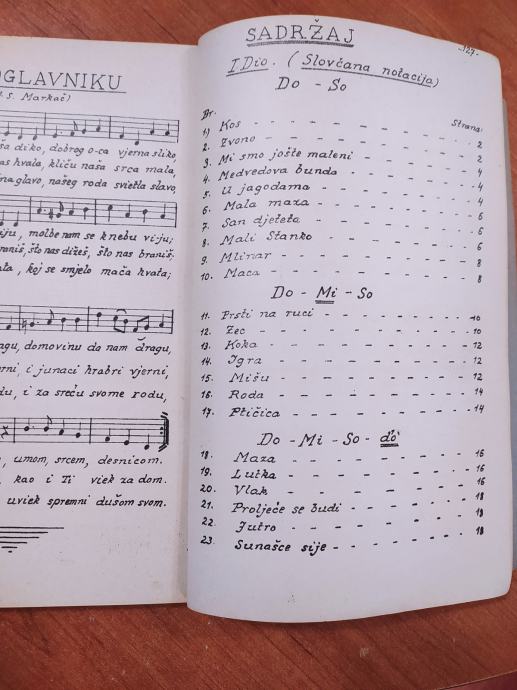 OGLAVNIKU
S. Markač)
ša diko, dobrog o-ca vjerna sliko,
as hvala, kliču naša srca mala,
na glavo, našeg roda svietla slavo,
iju, molbe nam se k nebu vi-ju;
braniš, što nas dižeš, što nas braniš.
ala, koj se smjelo mača hvata;
agu, domovinu da nam dragu,
erni, i junaci hrabri vjerni,
du, i za sreću svome rodu,
, umom, srcem, desnicom.
, kao i Ti viek za dom.
uviek spremni dušom svom.
127.
SADRŽAJ
I Dio. (Slovčana notacija)
Do - So
Br. Strana:
1) Kos - - - - - - - - 2
2. Zvono - - - - - - - - 2
3. Mi smo jošte maleni - - - - - 2
4. Medvedova bunda - - - - - - 4
5. U jagodama - - - - - - - 4
6. Mala maza - - - - - - - 4
7. San djeteta - - - - - - - 6
8. Mali Stanko - - - - - - - 6
9. Mlinar - - - - - - - - 6
10. Maca - - - - - - - - 8
Do - Mi - So
11. Prsti na ruci - - - - - - - 10
12. Zec - - - - - - - - 10
13. Koka - - - - - - - - 12
14. Igra - - - - - - - - 12
15. Mišu - - - - - - - - 12
16. Roda - - - - - - - - 14
17. Ptičica - - - - - - - - 14
Do - Mi - So - do
18. Maza - - - - - - - - 16
19. Lutka - - - - - - - - 16
20. Vlak - - - - - - - - 16
21. Proljeće se budi - - - - - - 18
22. Jutro - - - - - - - - 18
23. Sunašce sije - - - - - - - 18